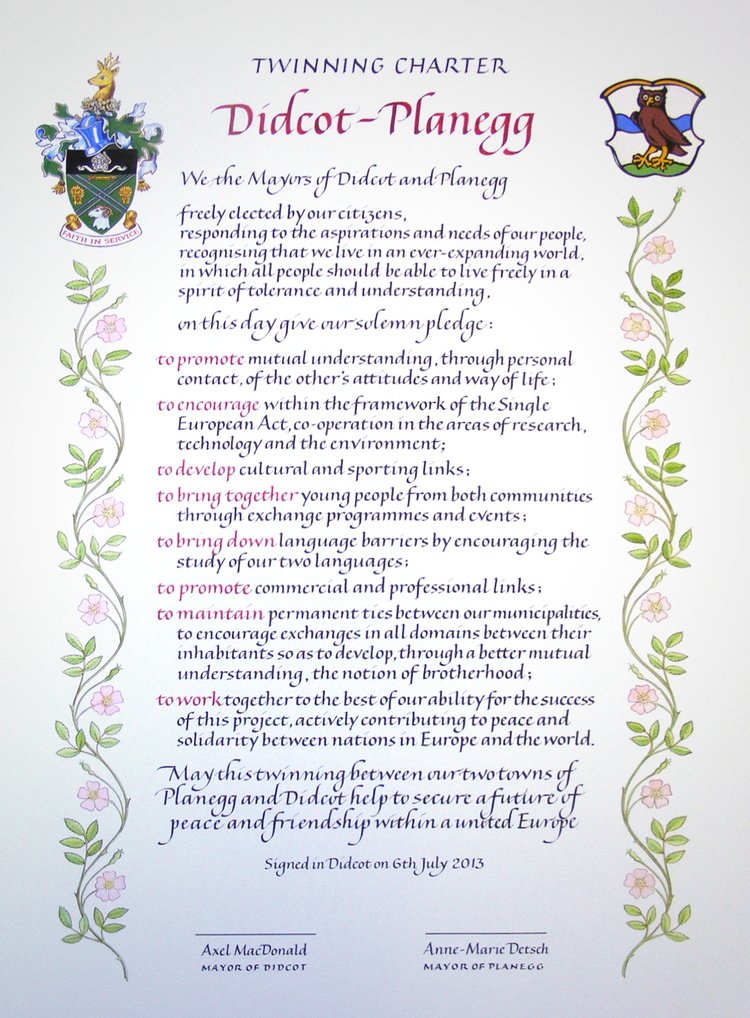 TWINNING CHARTER
Didcot-Planegg
FAITH IN SERVICE
We the Mayors of Didcot and Planegg
freely elected by our citizens,
responding to the aspirations and needs of our people,
recognising that we live in an ever-expanding world,
in which all people should be able to live freely in a
spirit of tolerance and understanding,
on this day give our solemn pledge:
to promote mutual understanding, through personal
contact, of the other's attitudes and way of life;
to encourage within the framework of the Single
European Act, co-operation in the areas of research,
technology and the environment;
to develop cultural and sporting links;
to bring together young people from both communities
through exchange programmes and events;
to bring down language barriers by encouraging the
study of our two languages;
to promote commercial and professional links;
to maintain permanent ties between our municipalities,
to encourage exchanges in all domains between their
inhabitants so as to develop, through a better mutual
understanding, the notion of brotherhood;
to work together to the best of our ability for the success
of this project, actively contributing to peace and
solidarity between nations in Europe and the world.
May this twinning between our two towns of
Planegg and Didcot help to secure a future of
peace and friendship within a united Europe
Signed in Didcot on 6th July 2013
Axel MacDonald
MAYOR OF DIDCOT
Anne-Marie Detsch
MAYOR OF PLANEGG